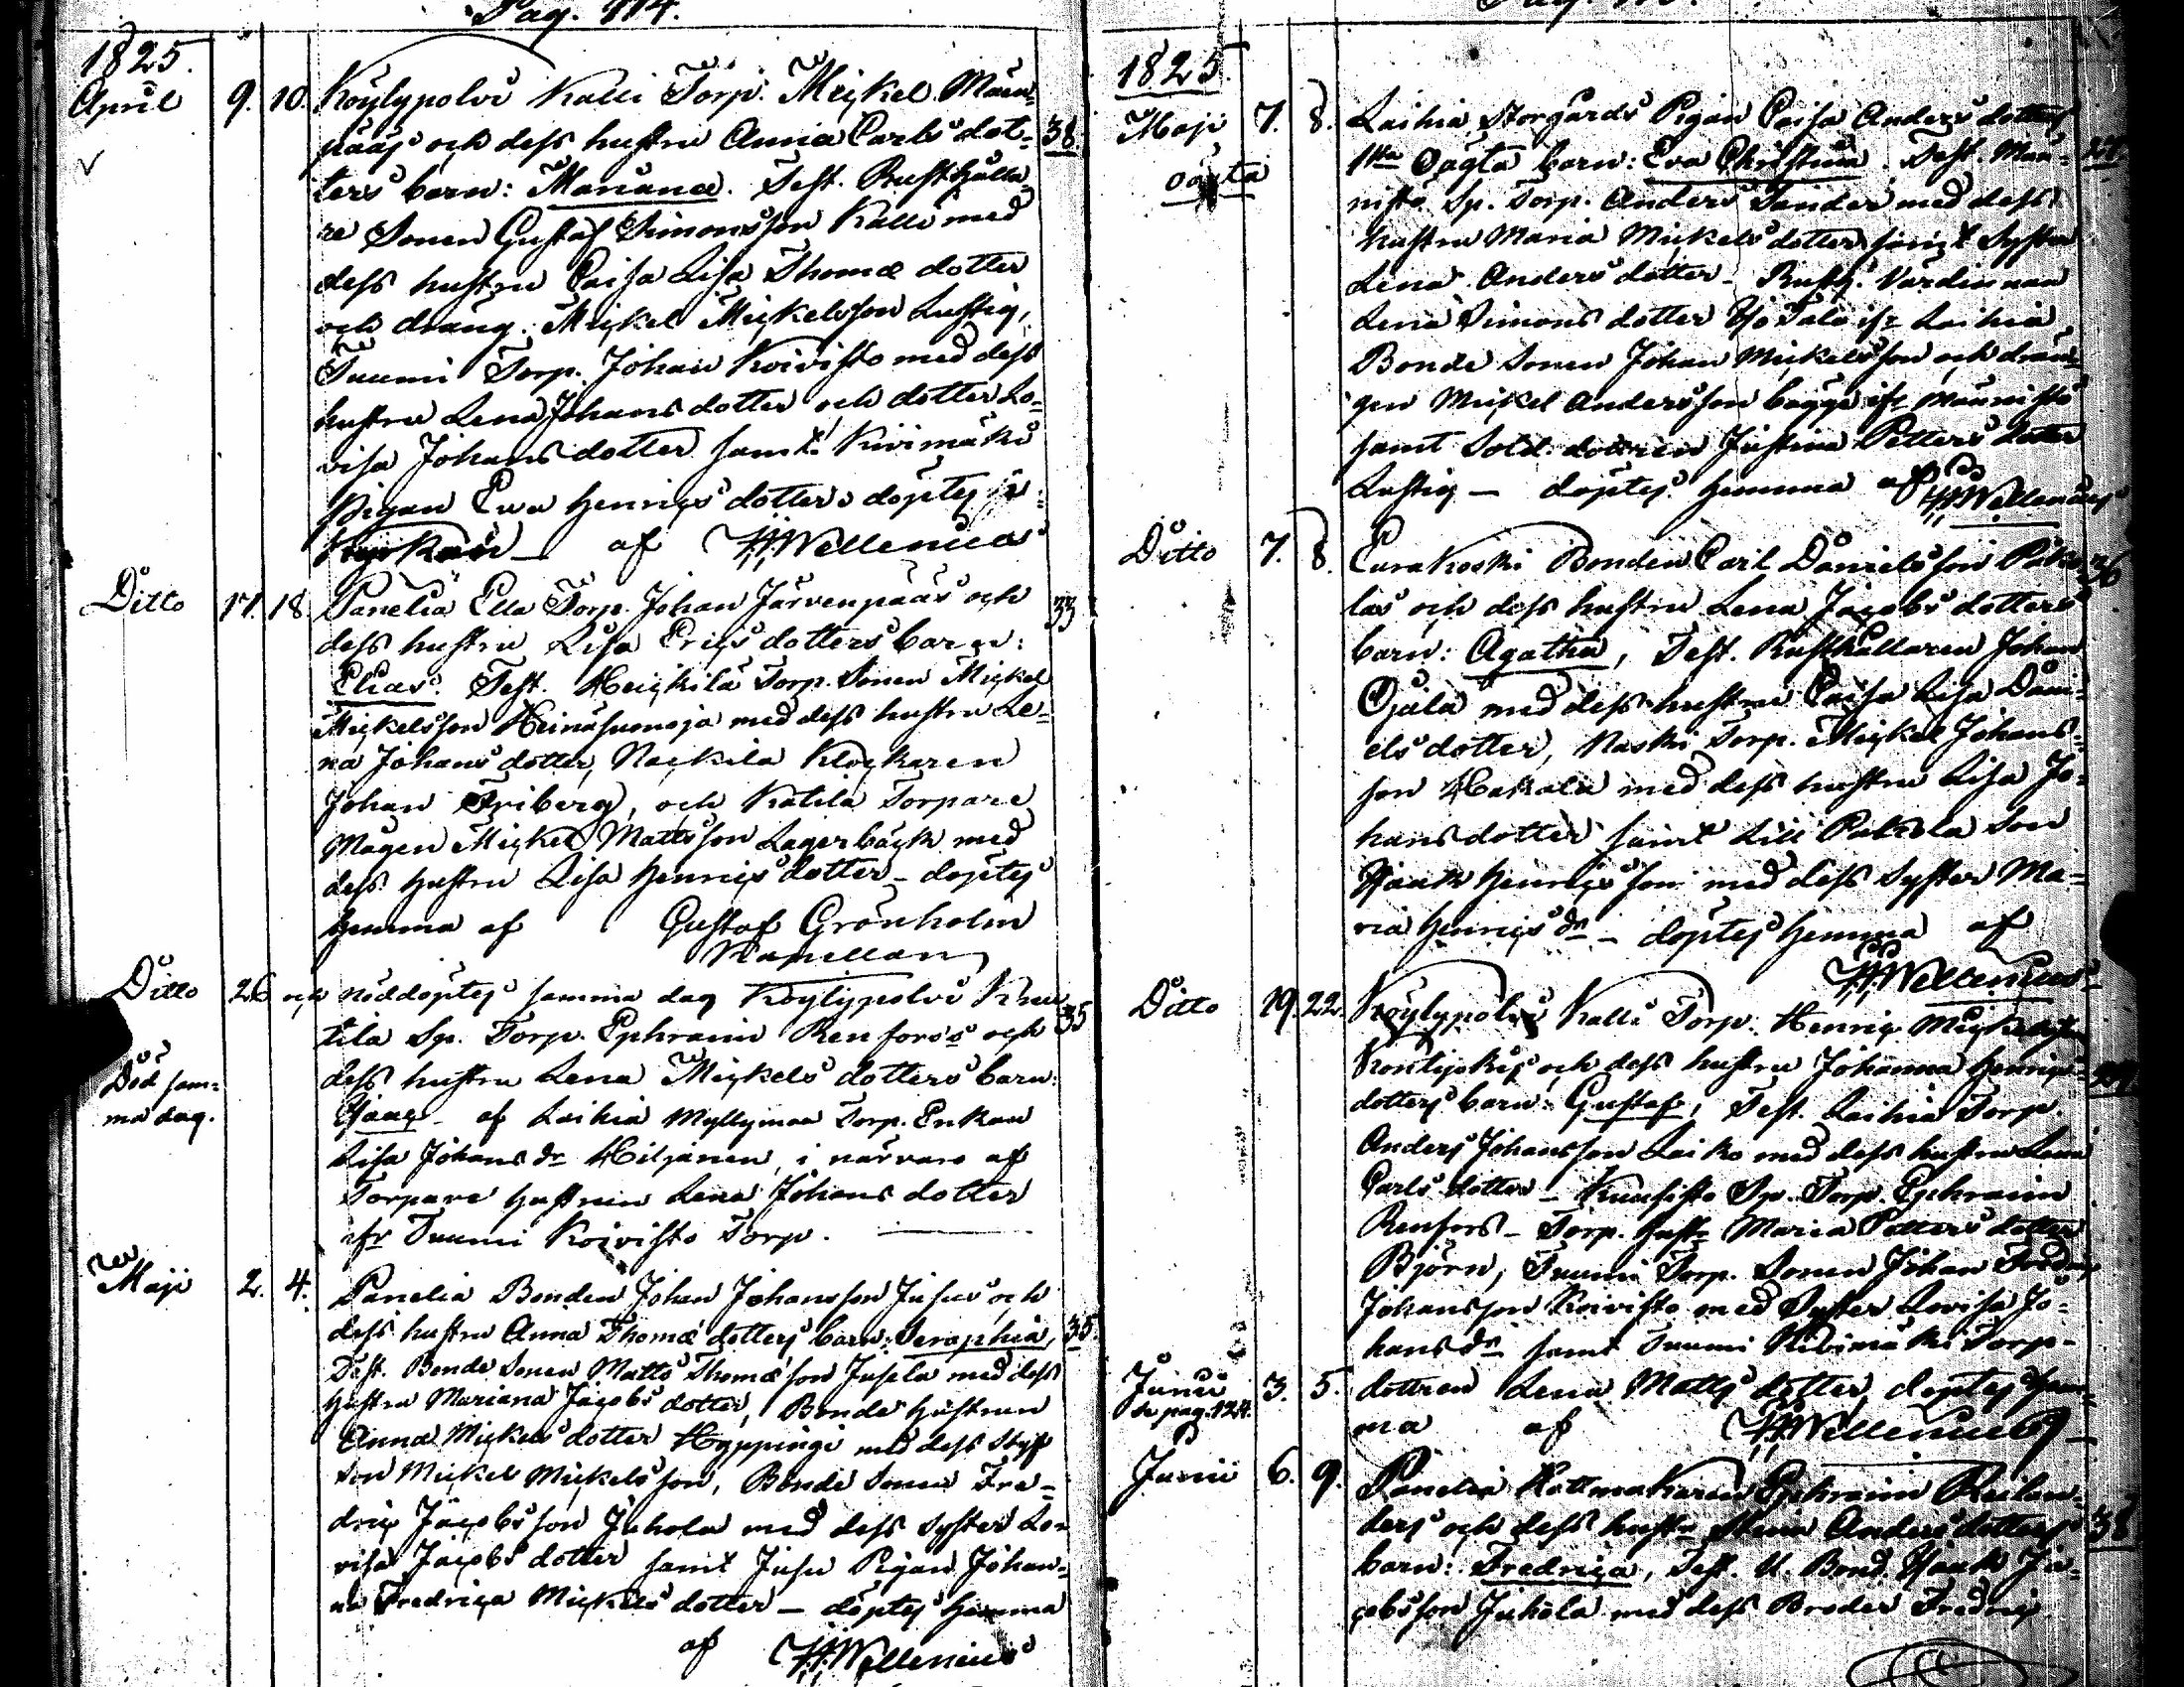 Pag. 114.
1825.
April 9. 10. Köylypolvi Kalli Torp. Mickel Mäen-
pääs och dess hustru Anna Carls dot- 38.
ters barn: Mariana. Test. Rusthålla
re Sonen Gustaf Simonsson Kalli med
dess hustru Caisa Lisa Thomæ dotter
och dräng. Mickel Mickelsson Lustig,
Tuumi Torp. Johan Koivisto med dess
hustru Lena Johans dotter och dotter Lo-
visa Johans dotter samt Kivimäki
Pigan Ewa Henrics dotter döptes i
Kyrkan af H. Wellenius
Ditto 17. 18. Panelia Ella Torp. Johan Järvenpääs och 33
dess hustru Lisa Erics dotters barn:
Elias. Test. Heickilä Torp. Sonen Mickel
Mickelsson Heinäsuonoja med dess hustru Le-
na Johans dotter, Nackila Klockaren
Johan Friberg, och Katila Torpare
Mågen Mickel Mattsson Lagerbäck med
dess hustru Lisa Henrics dotter – döptes
hemma af Gustaf Grönholm
Kapellan
Ditto 26 och nöddöptes samma dag Köylypolvi 35
tila Sp. Torp. Ephraim Renforss och
Död sam-
ma dag.
dess hustru Lena Mickels dotters barn:
Isaac – af Laihia Myllymaa Torp. Enkan
Lisa Johans dr Hiljanen, i närvaro af
Torpare hustrun Lena Johans dotter
ifr Tuumi Koivisto Torp.
Maji 2. 4. Panelia Bonden Johan Johansson Jusus och
dess hustru Anna Thomæ dotters barn: Seraphia, 35.
Test. Bonde Sonen Matts Thomæ son Jusela med dess
hustru Mariana Jacobs dotter, Bonde hustrun
Anna Mickels dotter Hyppingi med dess Styf
son Mickel Mickelsson, Bonde Sonen Fre-
dric Jacobsson Juhola med dess Syster Lo-
visa Jacobs dotter samt Jusu Pigan Johan-
na Fredrica Mickels dotter – döptes hemma
af H. Wellenius
1825.
Maji 7. 8. Laihia Storgårds Pigan Caisa Anders dotters
oägta
1sta Oägta barn: Eva Christina. Test. Man-
nisto Sp. Torp. Anders Sander med dess
hustru Maria Mickels dotter samt Syster
Lena Anders dotter – Rusth. Värdinnan
Lena Simons dotter Iso Tala ifr Laihia
Bonde Sonen Johan Mickelsson och drän-
gen Mickel Andersson Bagge ifr Männistö
samt Sold. dottren Justina Petters dotter
Lustig – döptes hemma af H. Wellenius
Ditto 7. 8. Eurakoski Bonden Carl Danielsson 36
las och dess hustru Lena Jacobs dotters
barn: Agatha, Test. Rusthållaren Johan
Ojala med dess hustru Caisa Lisa Dani-
els dotter, Naski Torp. Mickel Johans-
son Hakala med dess hustru Lisa Jo-
hans dotter samt Lill Pakola Son
Isaak Henricsson med dess Syster Ma-
ria Henrics dr – döptes hemma af
H. Wellenius
Ditto 19. 22. Köylypolvi Kalli Torp. Henric Mickelsson
och dess hustru Johanna Henrics
dotters barn: Gustaf, Test. Laihia Torp.
Anders Johansson Laiko med dess hustru Lena
Carls dotter – Kuusisto Sp. Torp. Ephraim
Renfors – Torp. hustr. Maria Petters dotter
Björn, Tuumi Torp. Sonen Johan Fredric
Johansson Koivisto med Syster Lovisa Jo-
hans dr samt Tuumi Kivimäki Torp-
Junii 3. 5. dottren Lena Matts dotter, döptes hem-
se pag. 124.
ma af H. Wellenius
Junii 6. 9. Panelia Hattmakaren Ephraim Reilan-
ders och dess hustr. Stina Anders dotters 38
barn: Fredrica, Test. U. Bond. Isaak Ja-
cobsson Juhola med dess Broder Fredric